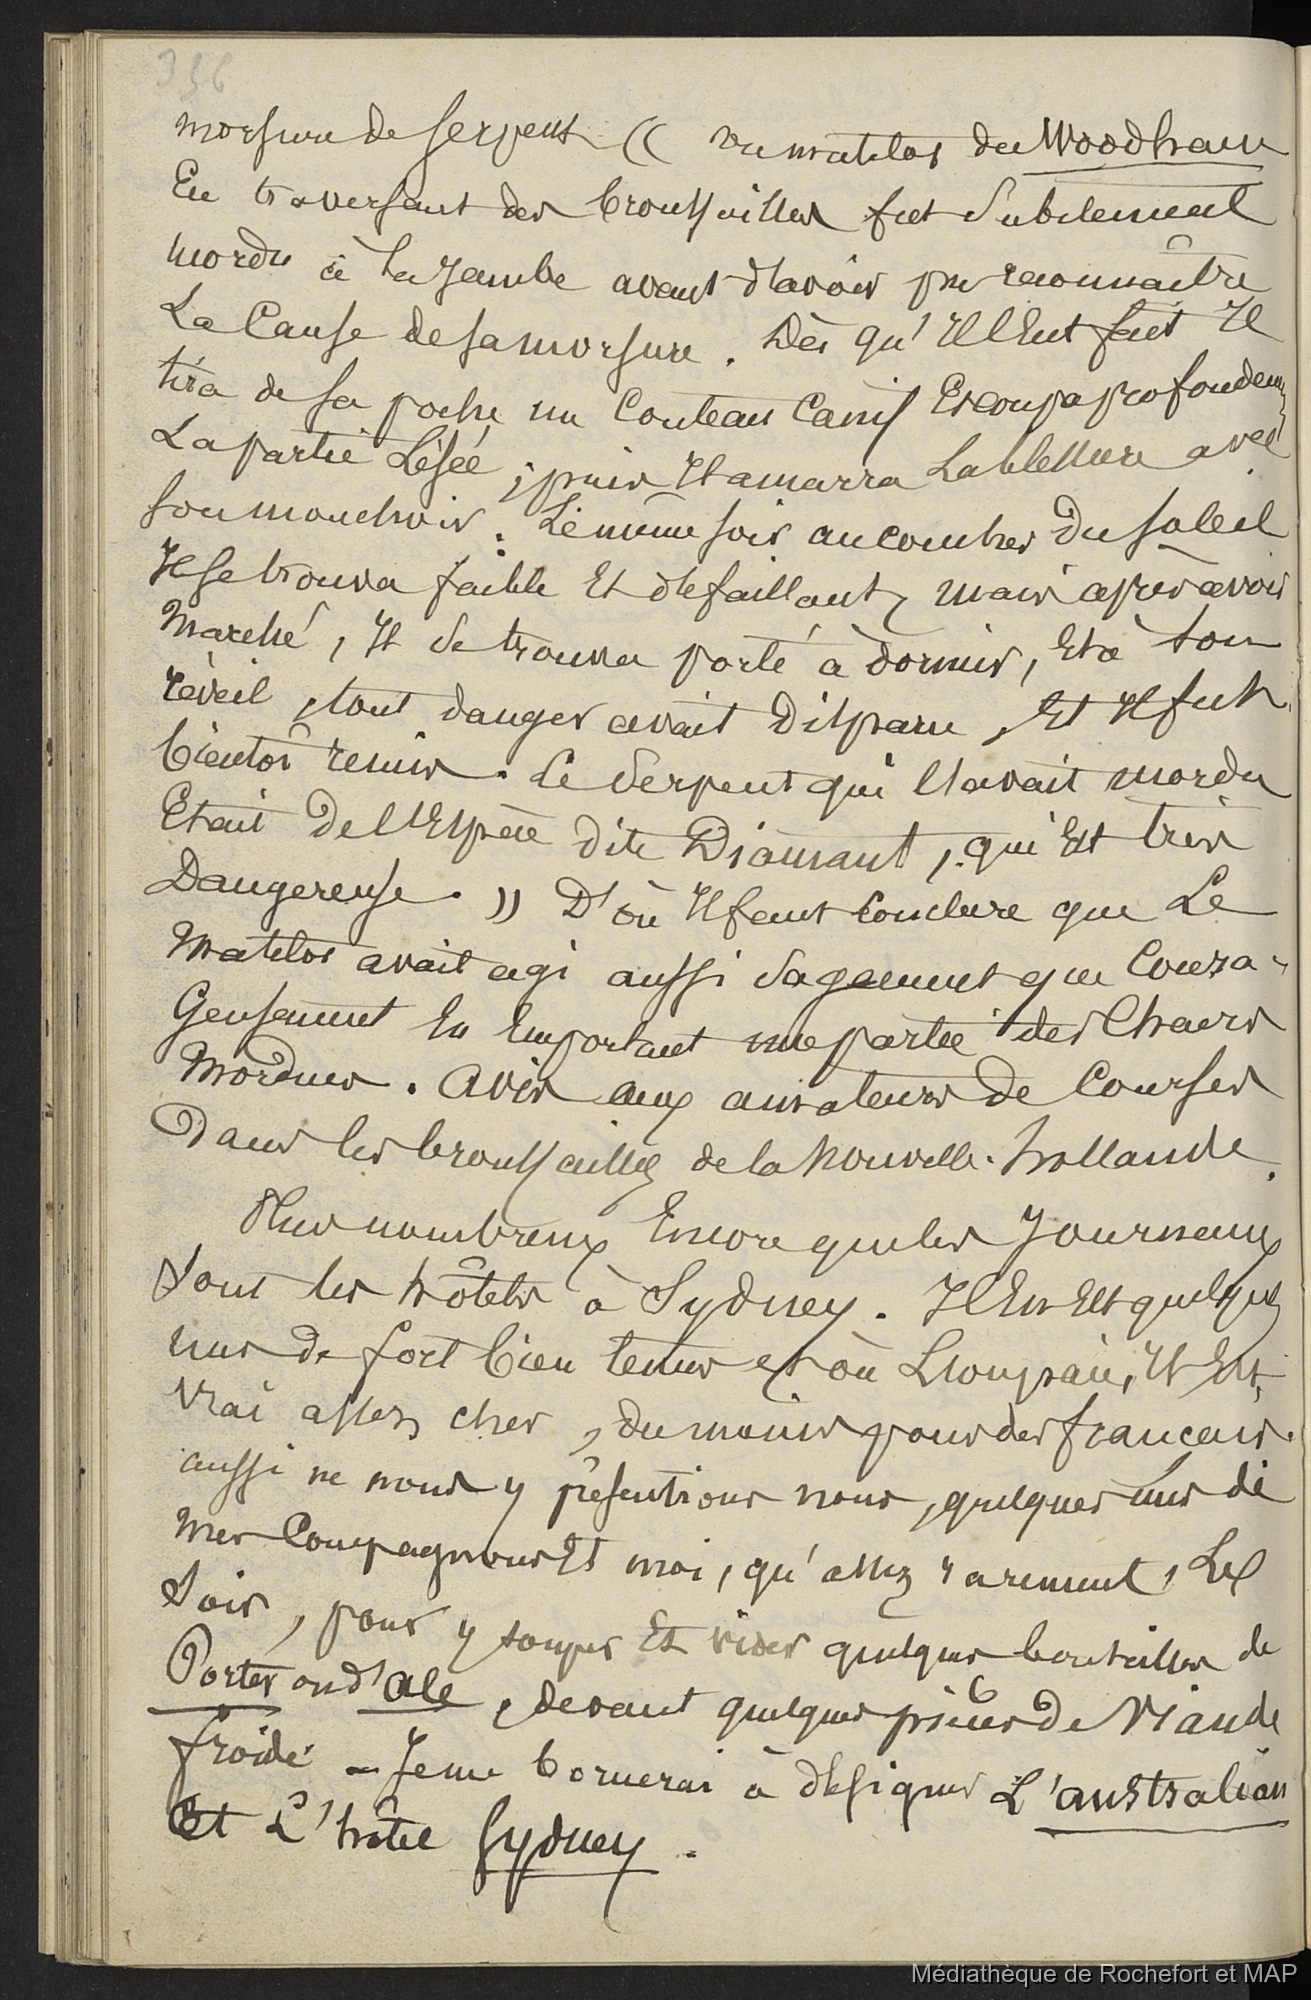 336
morsure de serpent (( un matelot du Woodham
En traversant des broussailles fut subitement
mordu à la jambe avant d'avoir pu reconnaître
La Cause de sa morsure. Dès qu'Il l'Eut fait Il
tira de sa poche un Couteau Canif Et coupa profondem
La partie Lésée, puis Il amarra La blessure avec
son mouchoir. Le même soir au coucher Du soleil
Il se trouva faible Et défaillant, mais après avoir
Marché, Il se trouva porté à dormir, Et à son
réveil, tout danger avait Disparu, Et Il fut
bientôt remis. Le Serpent qui l'avait mordu
Etait De l'Espèce dite Diamant, qui Est très
Dangereuse. )) D'où Il faut Conclure que Le
Matelot avait agi aussi sagement que Coura-
Geusement En Emportant une partie des Chairs
Mordues. Avis aux amateurs de Courses
Dans les broussailles de la Nouvelle-hollande.
Plus nombreux Encore que les Journaux
Sont les hôtels à Sydney. Il En Est quelques
uns de fort bien tenus et où L'on paie, Il Est
vrai assez cher, du moins pour des français.
aussi ne nous y présentions nous, quelques uns de
Mes Compagnons Et moi, qu'assez rarement, Le
Soir, pour y souper Et vider quelques bouteilles de
Porter ou d'Ale, devant quelques pièces De Viande
froide - Je me bornerai à désigner L'australian
Et L'hôtel Sydney.
Médiathèque de Rochefort et MAP